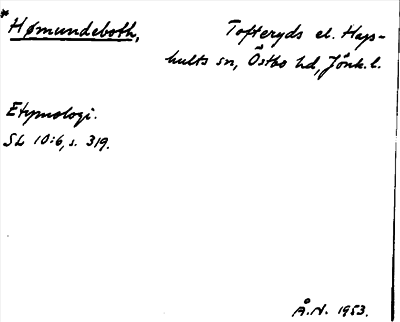 *Hømundeboth, Tofteryds el. Hags-
hults sn, Östbo hd, Jönk. l.
Etymologi.
SL 10:6, s. 319.
Å.N. 1953.